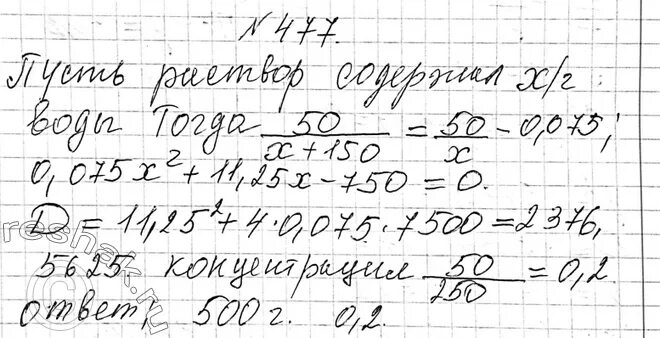 № 477.
Пусть раствор содержал x/г
воды Тогда 50/(x+150) = 50/x - 0,075;
0,075x² + 11,25x - 750 = 0.
D = 11,25² + 4·0,075·7500 = 2376,
5625 концентрация 50/250 = 0,2
ответ, 500 г. 0,2.
© reshak.ru